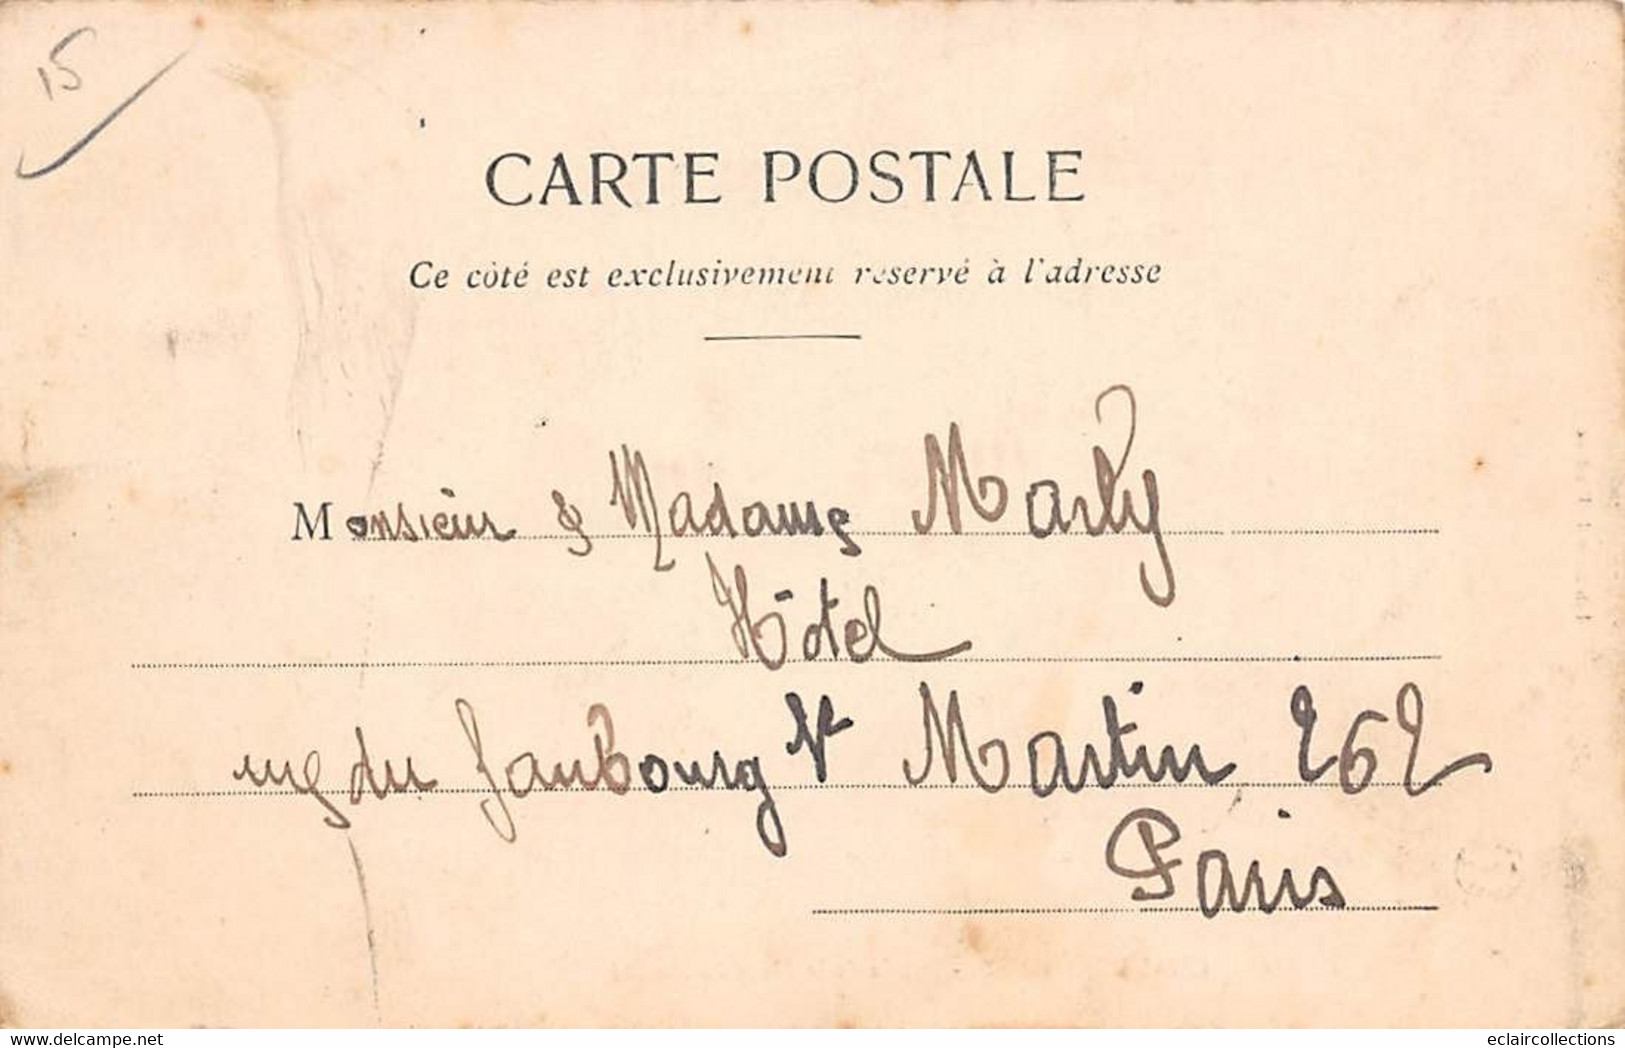 15
CARTE POSTALE
Ce côté est exclusivement réservé à l'adresse
Monsieur & Madame Marly
Hôtel
rue du faubourg St Martin 262
Paris
delcampe.net
eclaircollections